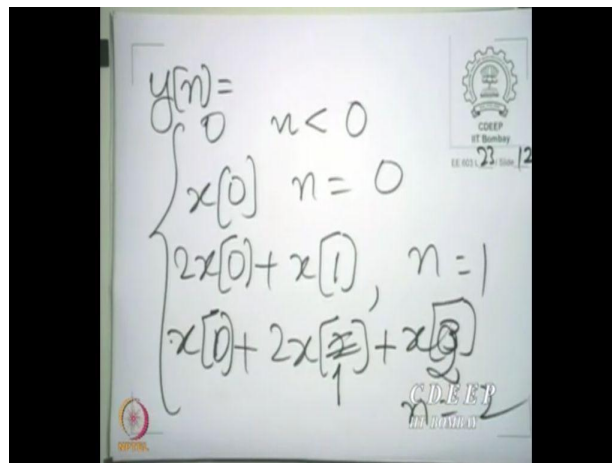 y[n]=
0 n < 0
x[0] n = 0
2x[0] + x[1], n = 1
x[0] + 2x[1] + x[2]
n = 2
CDEEP
IIT Bombay
EE 603 L 23 / Slide 12
CDEEP
IIT BOMBAY
NPTEL